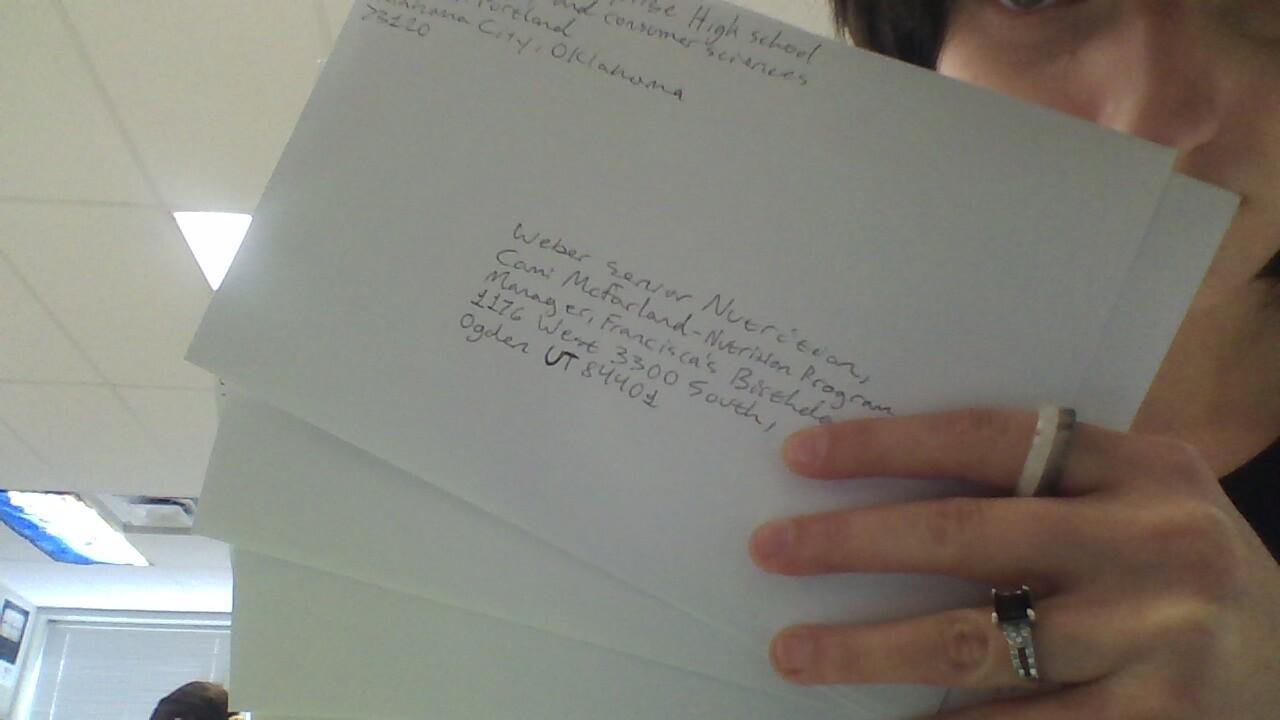 High school
and consumer sciences
Portland
City, Oklahoma
73120
Weber Senior Nutrition,
Cami McFarland-Nutrition Program
Manager, Francisca's Birthda
1176 West 3300 South,
Ogden UT 84401